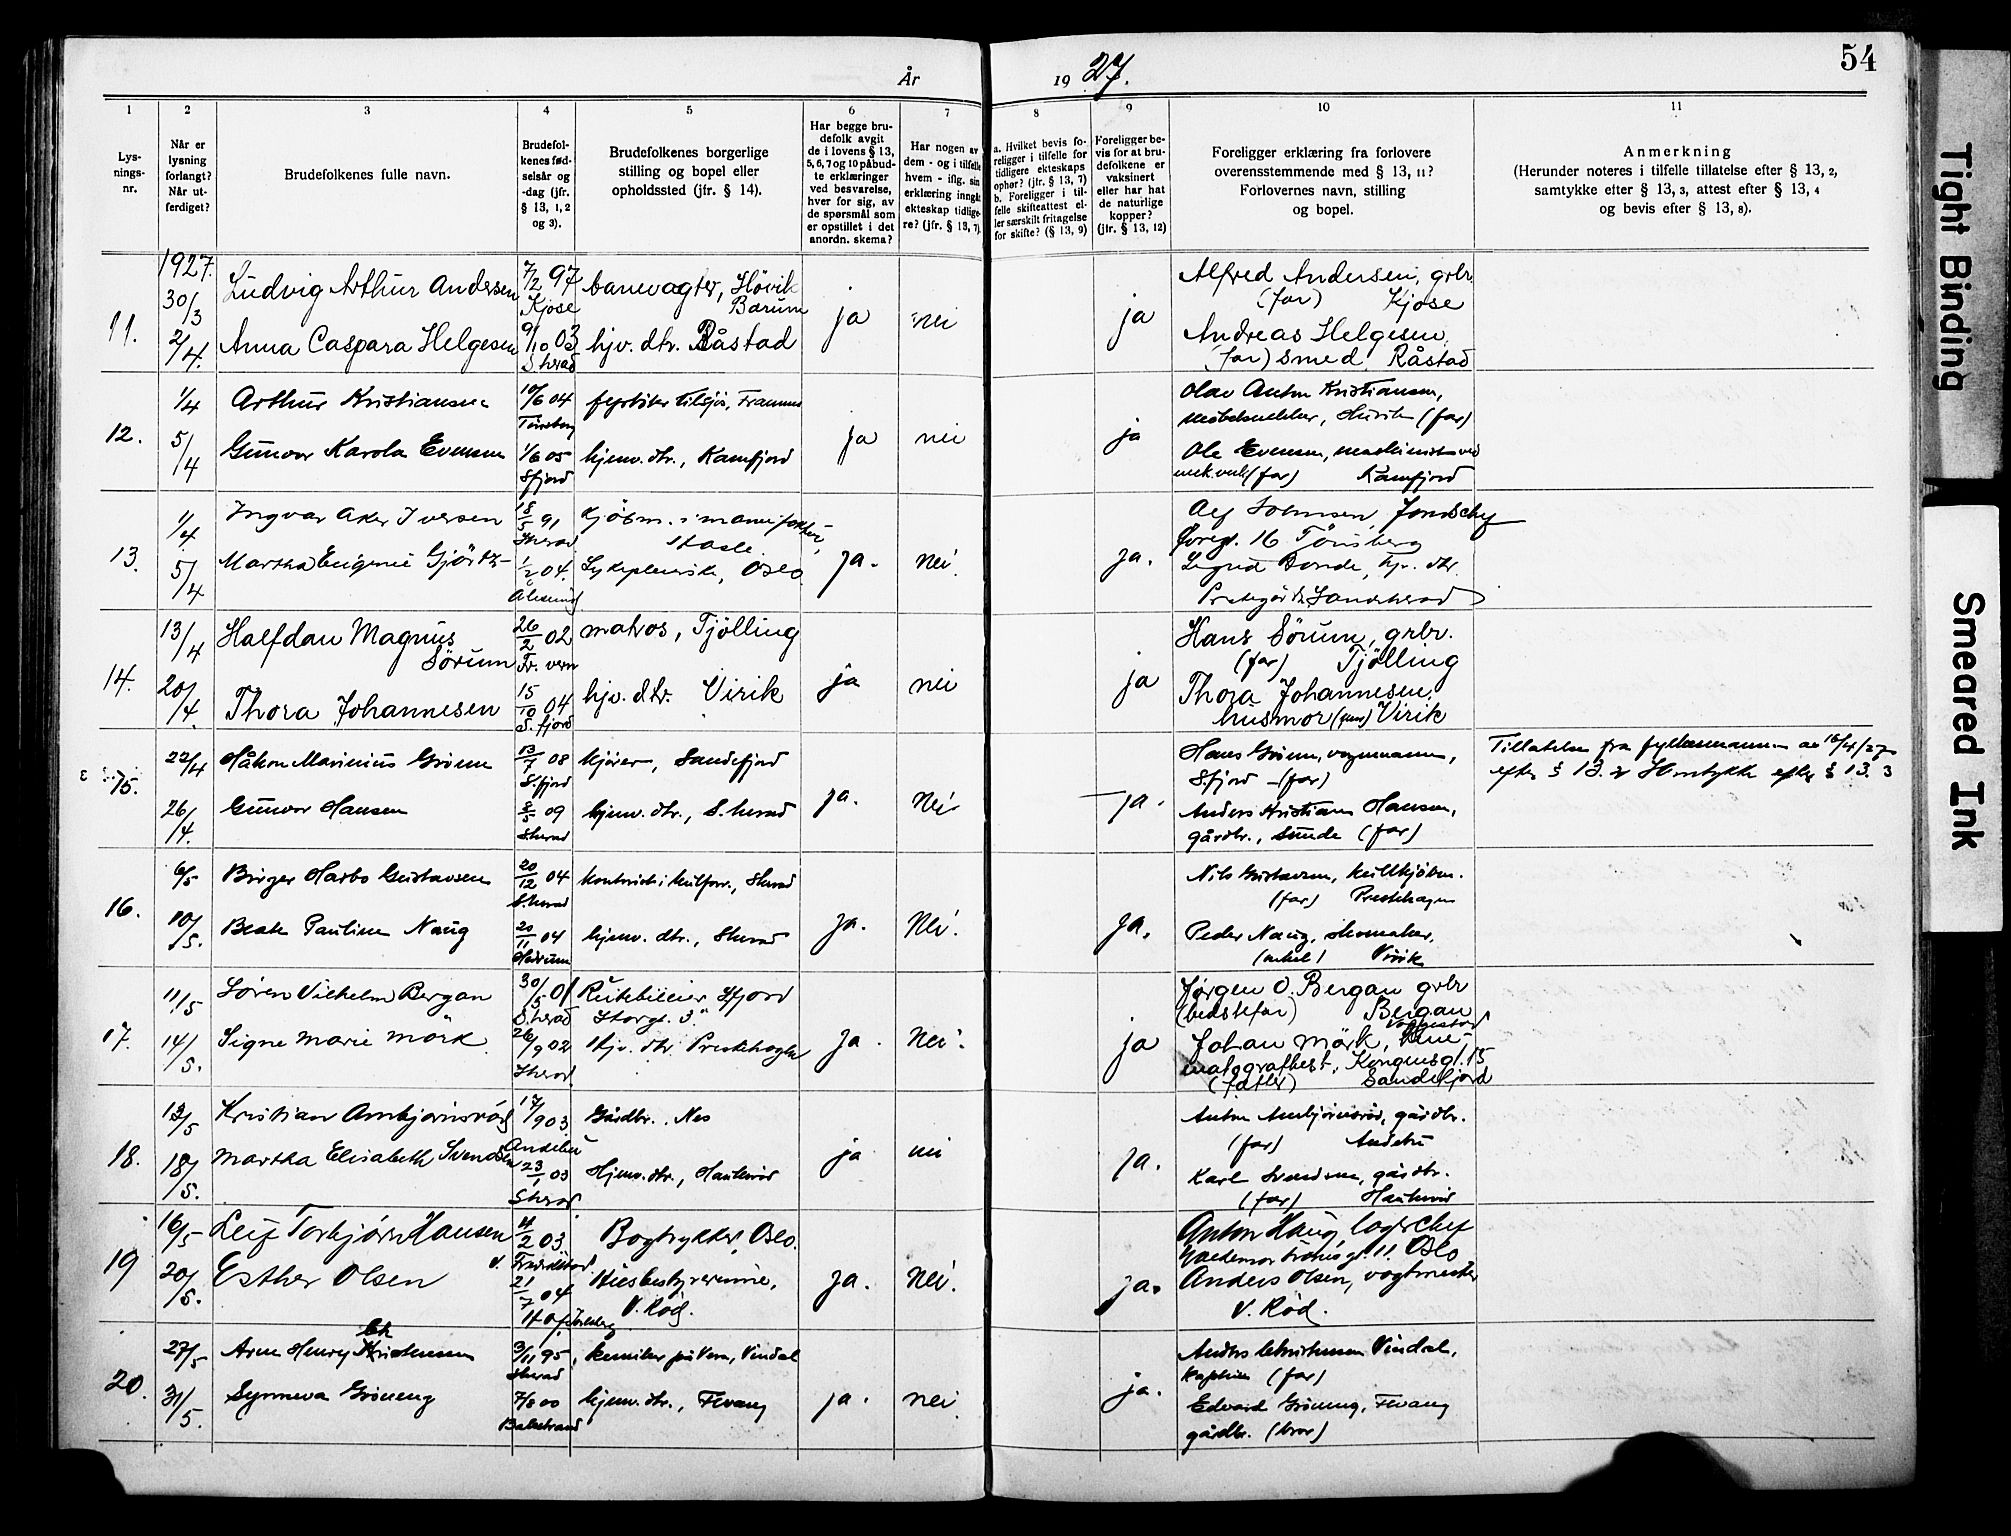 54
År 1927.
1 2 3 4 5 6 7 8 9 10 11
Lys-
nings-
nr.
Når er
lysning
forlangt?
Når ut-
ferdiget?
Brudefolkenes fulle navn.
Brudefol-
kenes fød-
selsår og
-dag (jfr.
§ 13, 1, 2
og 3).
Brudefolkenes borgerlige
stilling og bopel eller
opholdssted (jfr. § 14).
Har begge bru-
defolk avgit
de i lovens § 13,
5, 6, 7 og 10 påbud-
te erklæringer
ved besvarelse,
hver for sig, av
de spørsmål som
er opstillet i det
anordn. skema?
Har nogen av
dem - og i tilfelle
hvem - iflg. sin
erklæring inngåt
ekteskap tidlige-
re? (jfr. § 13, 7).
a. Hvilket bevis fo-
religger i tilfelle for
tidligere ekteskaps
ophør? (jfr. § 13, 7)
b. Foreligger i til-
felle skifteattest el-
ler særskilt fritagelse
for skifte? (§ 13, 9)
Foreligger be-
vis for at bru-
defolkene er
vaksinert
eller har hat
de naturlige
kopper?
(jfr. § 13, 12)
Foreligger erklæring fra forlovere
overensstemmende med § 13, 11?
Forlovernes navn, stilling
og bopel.
Anmerkning
(Herunder noteres i tilfelle tillatelse efter § 13, 2,
samtykke efter § 13, 3, attest efter § 13, 4
og bevis efter § 13, 8).
1927.
11. 30/3 Ludvig Arthur Andersen 7/2 97 Kjose banevogter, Høvik Bærum ja nei ja Alfred Andersen, grbr.
(far) Kjose
2/4. Anna Caspara Helgesen 9/10 03 S.herad hjv. dtr. Råstad Andreas Helgesen,
(far) smed Råstad
12. 1/4 Arthur Kristiansen 10/6 04 Tønsberg fyrbøter tilsjøs, Framnes ja nei ja Olav Anton Kristiansen,
møbelsnekker, (far)
5/4 Gunvor Karola Evensen 1/6 05 Sfjord hjemv. dtr., Kamfjord Ole Evensen, maskinist ved
mek. verk (far) Kamfjord
13. 1/4 Ingvar Aker Iversen 18/5 91 Sherad kjøbm. i manufaktur, ja. nei. ja. Tønsberg
5/4 Martha Eugenie Gjørtz 04. Ålesund Sykepleierske, Oslo Sigrid hjv. dtr.
Sandeherad
14. 13/4 Halfdan Magnus
Sørum 26/2 02 Fr. vern matros, Tjølling ja nei ja Hans Sørum, grbr.
(far) Tjølling
20/4. Thora Johannesen 15/10 04 S.fjord hjv. dtr. Virik Thora Johannesen,
husmor (mor) Virik
15. 22/4 Håkon Marinius Grønn 13/7 08 S.fjord kjører, Sandefjord ja. nei ja. Hans Grønn, vognmann,
Sfjord (far)
Tillatelse fra fylkesmannen av 16/4/27
efter § 13. 2 Samtykke efter § 13. 3
26/4. Gunvor Hansen 09 Sherad hjemv. dtr., S.herad Anders Kristian Hansen,
gårdbr., Sunde (far)
16. 6/5 Birger Marbo Gustavsen 20/12 04 S.herad kontorist i kulforr., Sherad ja. Nei. ja. Nils Gustavsen, kullkjøbm.
(far) Prestehagen
10/5. Beate Pauline Naug 20/11 04 Hedrum hjemv. dtr., Sherad Peder Naug, skomaker,
(onkel) Virik
17. 11/5 Søren Vilhelm Bergan 30/5 01 S.herad Rutebileier, Sfjord
Storgt. 3. ja. Nei. ja Jørgen O. Bergan grbr
(bedstefar) Bergan
14/5. Signe Marie Mørk 26/9 02 Sherad Hjv. dtr. Prestehagen Johan Mørk, kine-
matografbest., Kongensgt. 15
(fatter) Sandefjord
18. 12/5 Kristian Ambjørnsrød 17/9 03 Andebu Gårdbr., Nes ja nei ja. Anton Ambjørnsrød, gårdbr.
(far) Andebu
18/5. Martha Elisabeth Svendsen 23/1 03 Sherad Hjemv. dtr., Haukerød Karl Svendsen, gårdbr.
(far) Haukerød
19 16/5 Leif Torbjørn Hansen 4/2 03 Bogtrykker, Oslo. ja. Nei. ja. Anton Haug lagerchef
gt. 11. Oslo
20/5. Esther Olsen 21/7 04 Husbestyrerinne,
V. Rød. Anders Olsen, vogtmester
V. Rød.
20. 27/5 Arne Henry Christensen 3/11 95, Sherad kemiker på Vera, Vindal ja. nei. ja. Anders Christensen Vindal,
kaptein (far)
31/5. Synneva Grøneng 7/8 00 Balestrand hjemv. dtr., Fevang Edvard Grøneng, Fevang
gårdbr. (bror)
Tight Binding
Smeared Ink